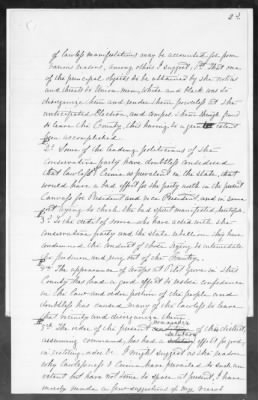 2d
of lawless manifestations may be accounted for from
various reasons, among others I suggest, 1st That one
of the principal objects to be attained by the
and threats to Union men, white and black was to
disorganize them and render them powerless at the
anticipated Election, and compel them through fear
to leave the County, this having to a great extent
been accomplished.
2d Some of the leading politicians of the
conservative party have doubtless considered
that lawless & Crime as prevalent in the State, that
would have a bad effect for the party north in the present
Canvass for President and Vice President, and in some
trying to check the
3d To the credit of some who have acted with the
conservative party and the State when in they have
condemned the conduct of those trying to intimidate
freedmen and out of the Country.
4th The appearance of troops at Pilot Grove in this
County has had a good effect to restore confidence
in the Law and order portion of the people and
doubtless has caused many of the lawless to leave
that vicinity and disorganize them
5th The order of the present commander of this district,
assuming command, has had a salutary effect for good,
in restoring order &c. I might suggest as the reason
why lawlessness & Crime have prevailed to such an
extent but have not time to spare at present, I have
merely made a few suggestions of my views